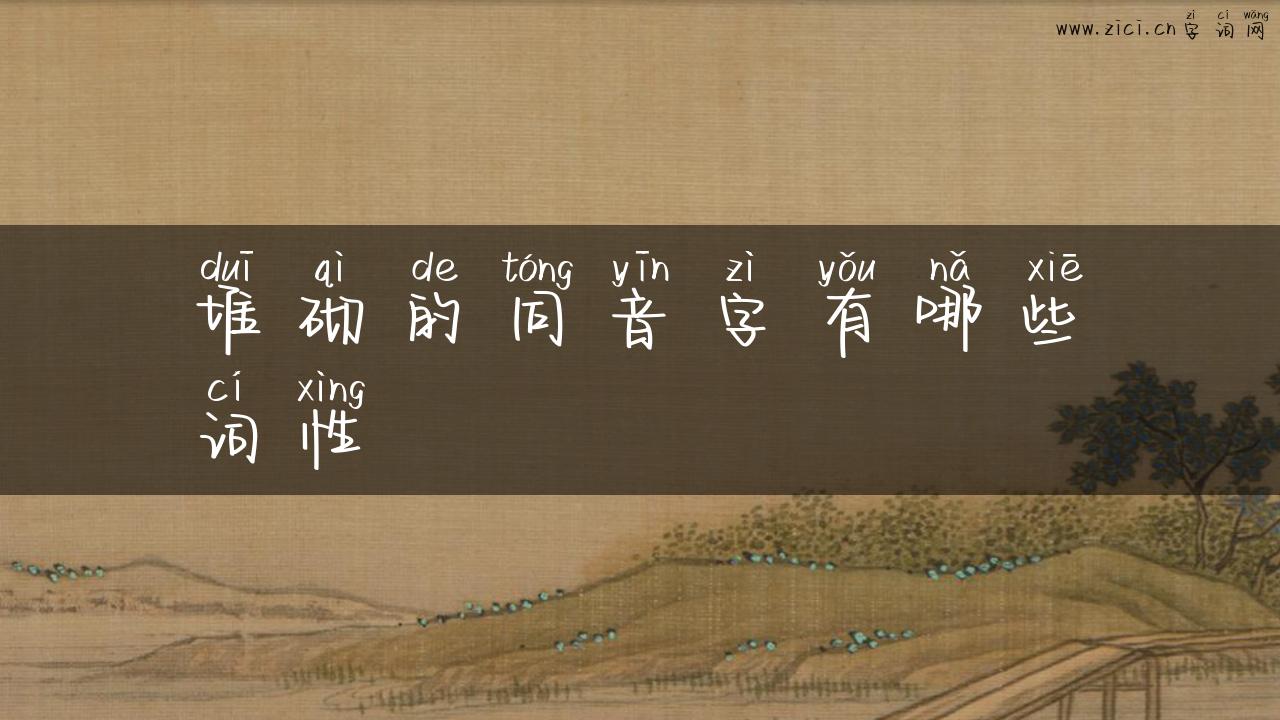 zì cí wǎng
www.zici.cn 字 词 网
duī qì de tóng yīn zì yǒu nǎ xiē
堆 砌 的 同 音 字 有 哪 些
cí xìng
词 性